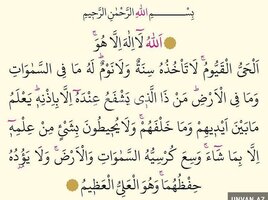 بِسْمِ اللهِ الرَّحْمٰنِ الرَّحِيمِ
اَللهُ لَٓا اِلٰهَ اِلَّا هُوَۚ
اَلْحَىُّ الْقَيُّومُۚ لَا تَأْخُذُهُ سِنَةٌ وَلَا نَوْمٌۜ لَهُ مَا فِى السَّمٰوَاتِ
وَمَا فِى الْاَرْضِۜ مَنْ ذَا الَّذٖى يَشْفَعُ عِنْدَهُٓ اِلَّا بِاِذْنِهٖۜ يَعْلَمُ
مَا بَيْنَ اَيْدٖيهِمْ وَمَا خَلْفَهُمْۚ وَلَا يُحٖيطُونَ بِشَىْءٍ مِنْ عِلْمِهٖٓ
اِلَّا بِمَا شَٓاءَۚ وَسِعَ كُرْسِيُّهُ السَّمٰوَاتِ وَالْاَرْضَۚ وَلَا يَؤُ۫دُهُ
حِفْظُهُمَاۚ وَهُوَ الْعَلِىُّ الْعَظٖيمُ
UNVAN.AZ